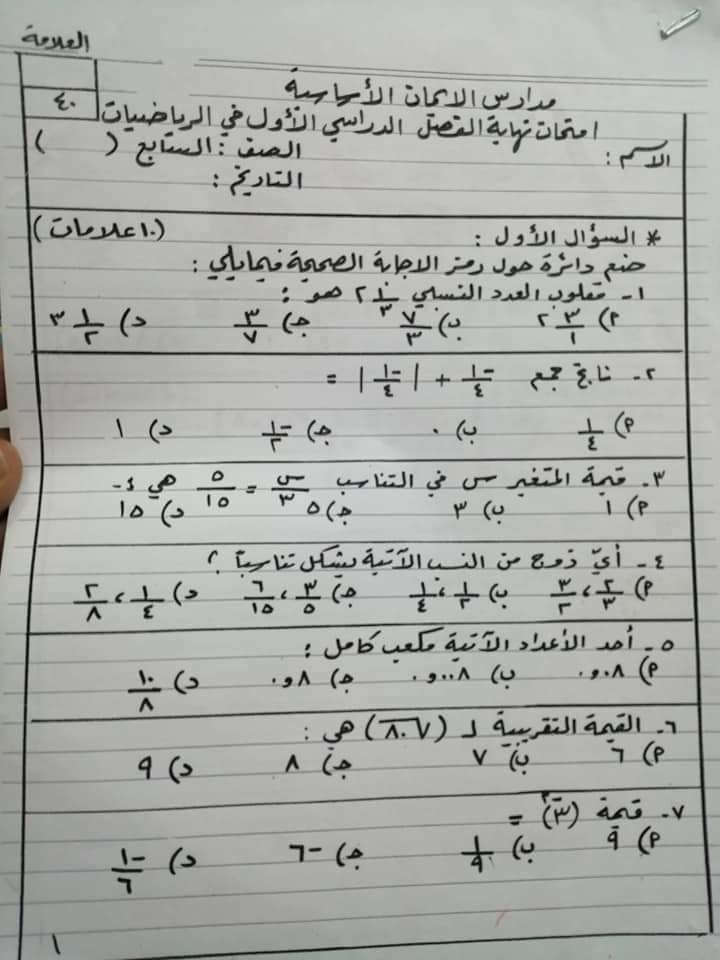 العلامة
٤٠
مدارس الايمان الأساسية
امتحان نهاية الفصل الدراسي الأول في الرياضيات
الاسم : الصف : السابع ( )
التاريخ :
* السؤال الأول : (١٠ علامات)
ضع دائرة حول رمز الاجابة الصحيحة فيمايلي :
١- مقلوب العدد النسبي ٢ ١/٣ هو :
أ) ٢ ٣/١ ب) ٧/٣ جـ) ٣/٧ د) ٣ ١/٢
٢- ناتج جمع -١/٤ + | -١/٤ | =
أ) ١/٤ ب) ٠ جـ) -١/٢ د) ١
٣- قيمة المتغير س في التناسب س/٣ = ٥/١٥ هي :-
أ) ١ ب) ٣ جـ) ٥ د) ١٥
٤- أيّ زوج من النسب الآتية يشكل تناسباً ؟
أ) ٢/٣ ، ٣/٢ ب) ١/٢ ، ١/٤ جـ) ٣/٥ ، ٦/١٥ د) ١/٤ ، ٢/٨
٥- أحد الأعداد الآتية مكعب كامل :
أ) ٠٨و٠ ب) ٠٠٨و٠ جـ) ٨و٠ د) ١٠/٨
٦- القيمة التقريبية لـ (√٨٠٧) هي :
أ) ٦ ب) ٧ جـ) ٨ د) ٩
٧- قيمة (٣)⁻² =
أ) ٩ ب) ١/٩ جـ) -٦ د) -١/٦
١